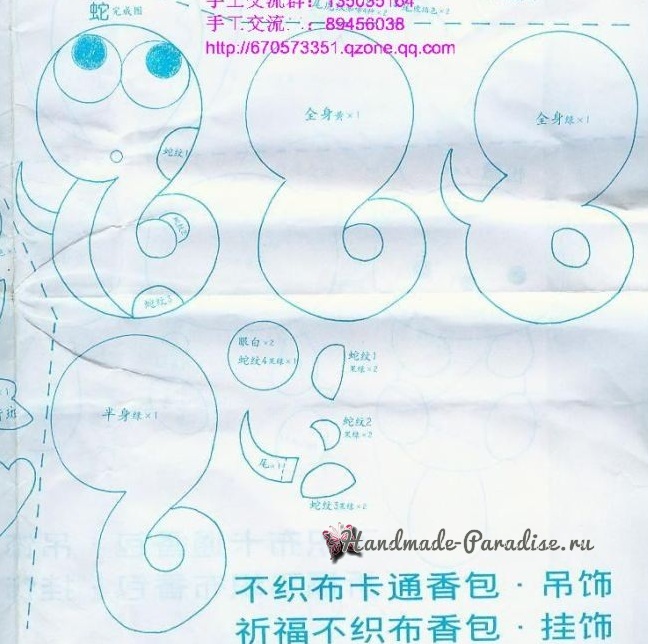 手工交流群：135035164
蛇 完成图
手工交流：89456038
http://670573351.qzone.qq.com
全身黄×1
全身绿×1
蛇纹1
蛇纹3
眼白×2
蛇纹4果绿×1
蛇纹1
果绿×2
半身绿×1
蛇纹2
果绿×2
尾×1
蛇纹3果绿×2
Handmade-Paradise.ru
不织布卡通香包·吊饰
祈福不织布香包·挂饰